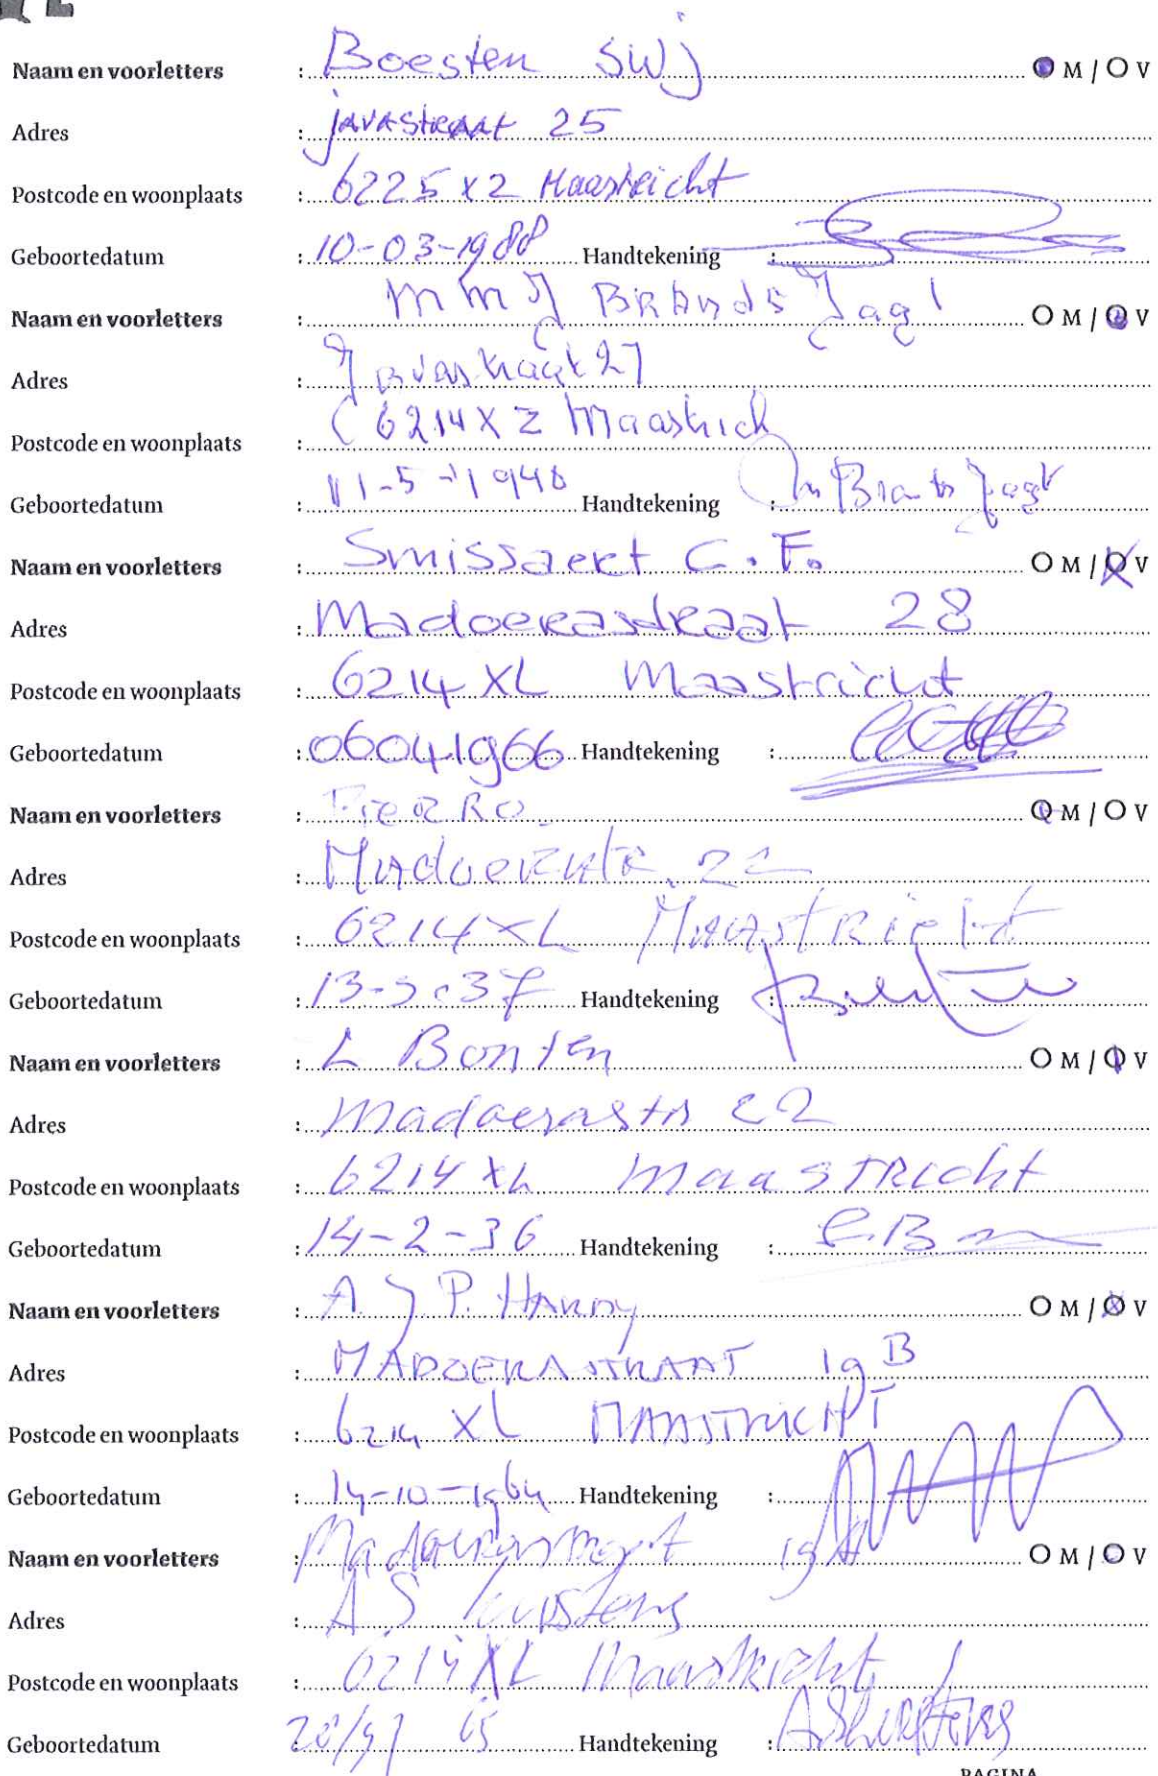 Naam en voorletters : Boesten SWJ M / O V
Adres : javastraat 25
Postcode en woonplaats : 6225 XZ Maastricht
Geboortedatum : 10-03-1988 Handtekening :
Naam en voorletters : MMJ BRANDS Jagt O M / O V
Adres : Javastraat 27
Postcode en woonplaats : 6214XZ Maastrich
Geboortedatum : 11-5-1948 Handtekening :
Naam en voorletters : Smissaert C.F. O M / O V
Adres : Madoerastraat 28
Postcode en woonplaats : 6214 XL Maastricht
Geboortedatum : 06041966 Handtekening :
Naam en voorletters : O M / O V
Adres : 22
Postcode en woonplaats : 6214 XL MAASTRICHT
Geboortedatum : Handtekening :
Naam en voorletters : L Bonten O M / O V
Adres : Madoerastr 22
Postcode en woonplaats : 6214 XL MaaSTRicht
Geboortedatum : 14-2-36 Handtekening :
Naam en voorletters : A J P. HARDY O M / O V
Adres : MADOERASTRAAT 19 B
Postcode en woonplaats : 6214 XL MAASTRICHT
Geboortedatum : 14-10-1964 Handtekening :
Naam en voorletters : O M / O V
Adres : A.S.
Postcode en woonplaats : 6214 XL Maastricht
Geboortedatum : Handtekening :
PAGINA